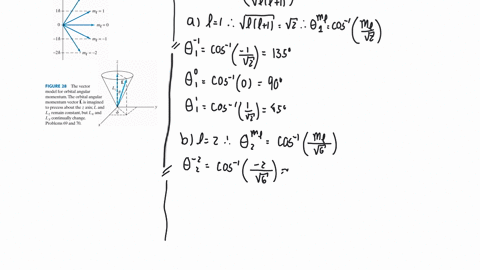 -1ħ
-2ħ
m_ℓ = 1
m_ℓ = 0
m_ℓ = -1
m_ℓ = -2
FIGURE 28 The vector
model for orbital angular
momentum. The orbital angular
momentum vector L is imagined
to precess about the z axis; L and
L_z remain constant, but L_x and
L_y continually change.
Problems 69 and 70.
a) l=1 ∴ √(l(l+1)) = √2 ∴ θ_1^{m_ℓ} = cos⁻¹(m_ℓ/√2)
θ_1^{-1} = cos⁻¹(-1/√2) = 135°
θ_1^0 = cos⁻¹(0) = 90°
θ_1^1 = cos⁻¹(1/√2) = 45°
b) l=2 ∴ θ_2^{m_ℓ} = cos⁻¹(m_ℓ/√6)
θ_2^{-2} = cos⁻¹(-2/√6) =